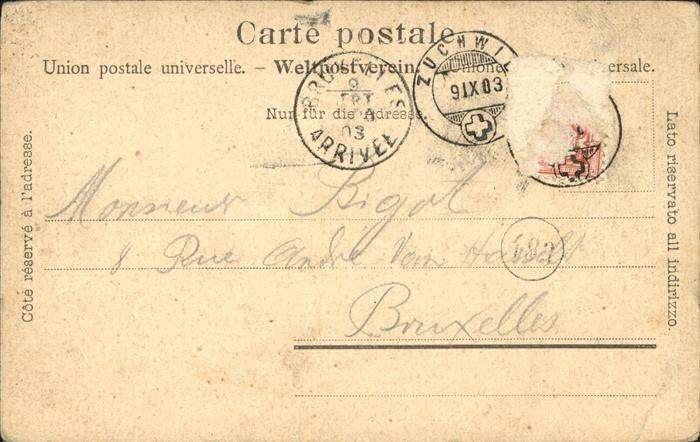 Carte postale.
Union postale universelle. – Weltpostverein. Unione ersale.
Nur für die Adresse.
Côté réservé à l'adresse.
Lato riservato all indirizzo.
BRUXELLES
9
SEPT
03
ARRIVÉE
ZUCHWIL
9 IX 03
48a
Monsieur Bigot
8 Rue André Van Hasselt
Bruxelles